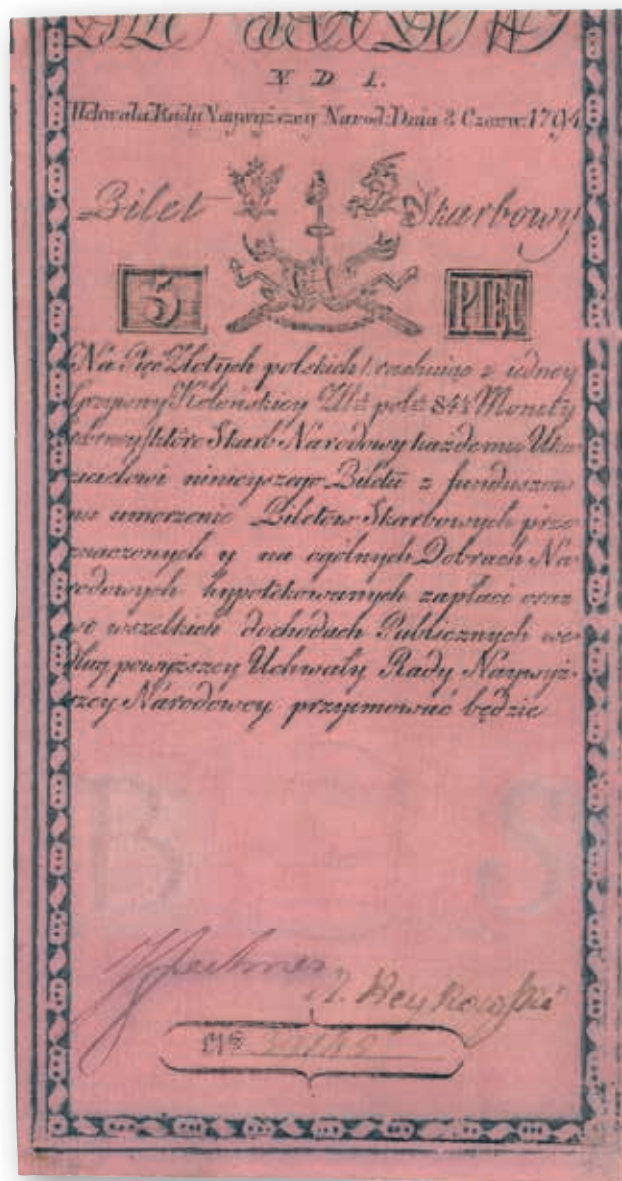 N D 1.
Uchwała Rady Naywyższey Narod: Dnia 8 Czerw: 1794
Bilet Skarbowy
5 PIĘC
Na Pięc Złotych polskich rachuiąc z iedney
Grzywny Kolońskiey Zł: pol: 84½ Monety
srebrney które Skarb Narodowy każdemu Uka-
zicielowi ninieyszego Biletu z funduszow
na umorzenie Biletow Skarbowych prze-
znaczonych y na ogolnych Dobrach Na-
rodowych hypotekowanych zapłaci oraz
we wszelkich dochodach Publicznych we-
dług powyższey Uchwały Rady Naywyż-
szey Narodowey przyimować będzie
B S
N°